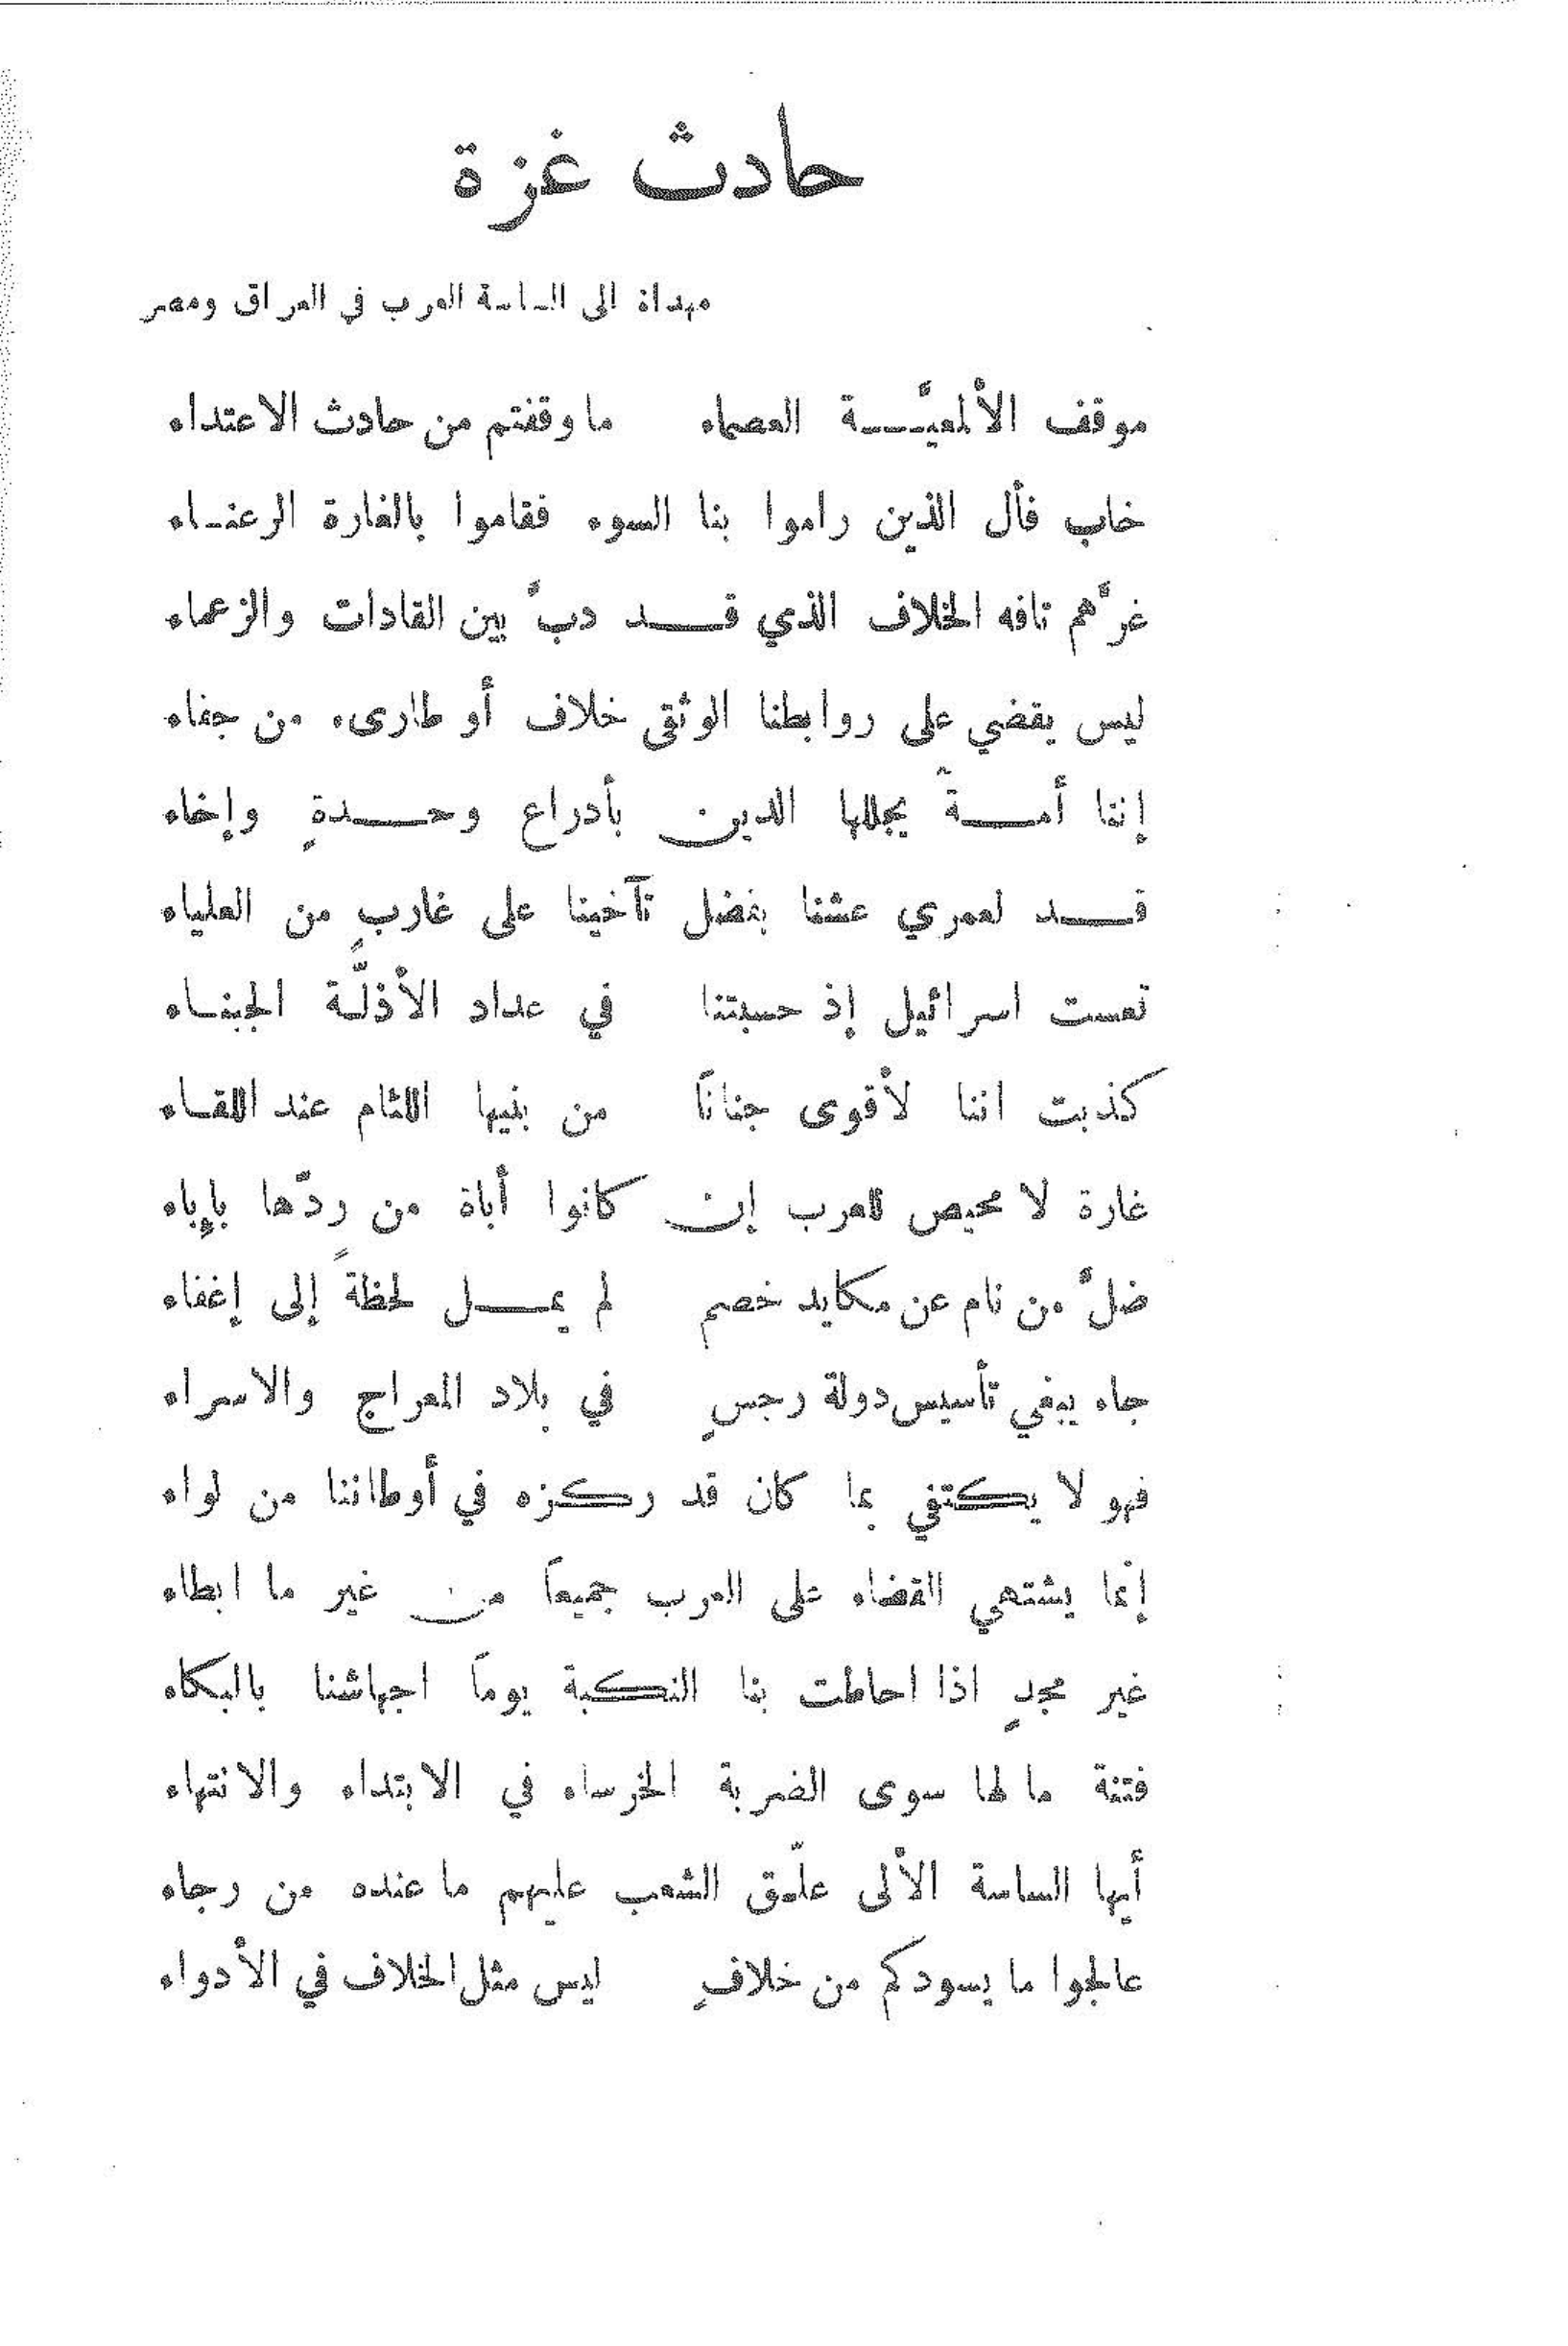 حادث غزة
مهداة الى الساسة العرب في العراق ومصر
موقف الألمعيَّة العصماء ما وقفتم من حادث الاعتداء
خاب فأل الذين راموا بنا السوء فقاموا بالغارة الرعناء
غرَّهم تافه الخلاف الذي قد دبَّ بين القادات والزعماء
ليس يقضي على روابطنا الوثقى خلاف أو طارىء من جفاء
إننا أمةٌ يجللها الدين بأدراع وحدةٍ وإخاء
قد لعمري عشنا بفضل تآخينا على غاربٍ من العلياء
تعست اسرائيل إذ حسبتنا في عداد الأذلَّة الجبناء
كذبت اننا لأقوى جناناً من بنيها اللئام عند اللقاء
غارة لا محيص للعرب إن كانوا أباة من ردّها بإباء
ضلَّ من نام عن مكايد خصم لم يمل لحظةً إلى إغفاء
جاء يبغي تأسيس دولة رجسٍ في بلاد المعراج والاسراء
فهو لا يكتفي بما كان قد ركزه في أوطاننا من لواء
إنما يشتهي القضاء على العرب جميعاً من غير ما ابطاء
غير مجدٍ اذا احاطت بنا النكبة يوماً اجهاشنا بالبكاء
فتنة ما لها سوى الضربة الخرساء في الابتداء والانتهاء
أيها الساسة الألى علّق الشعب عليهم ما عنده من رجاء
عالجوا ما يسودكم من خلافٍ ليس مثل الخلاف في الأدواء